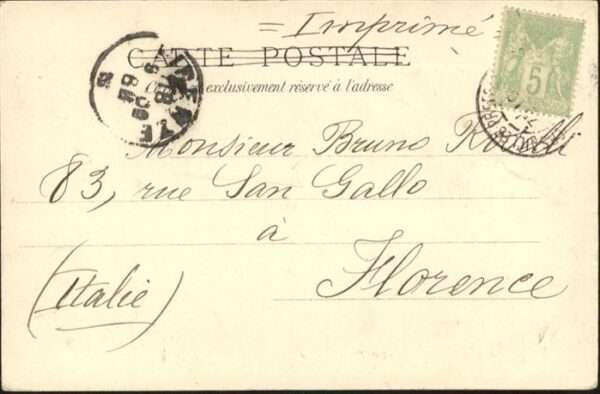 = Imprimé
CARTE POSTALE
exclusivement réservé à l'adresse
5
FIRENZE
Monsieur Bruno
83, rue San Gallo
à
Florence
(Italie)